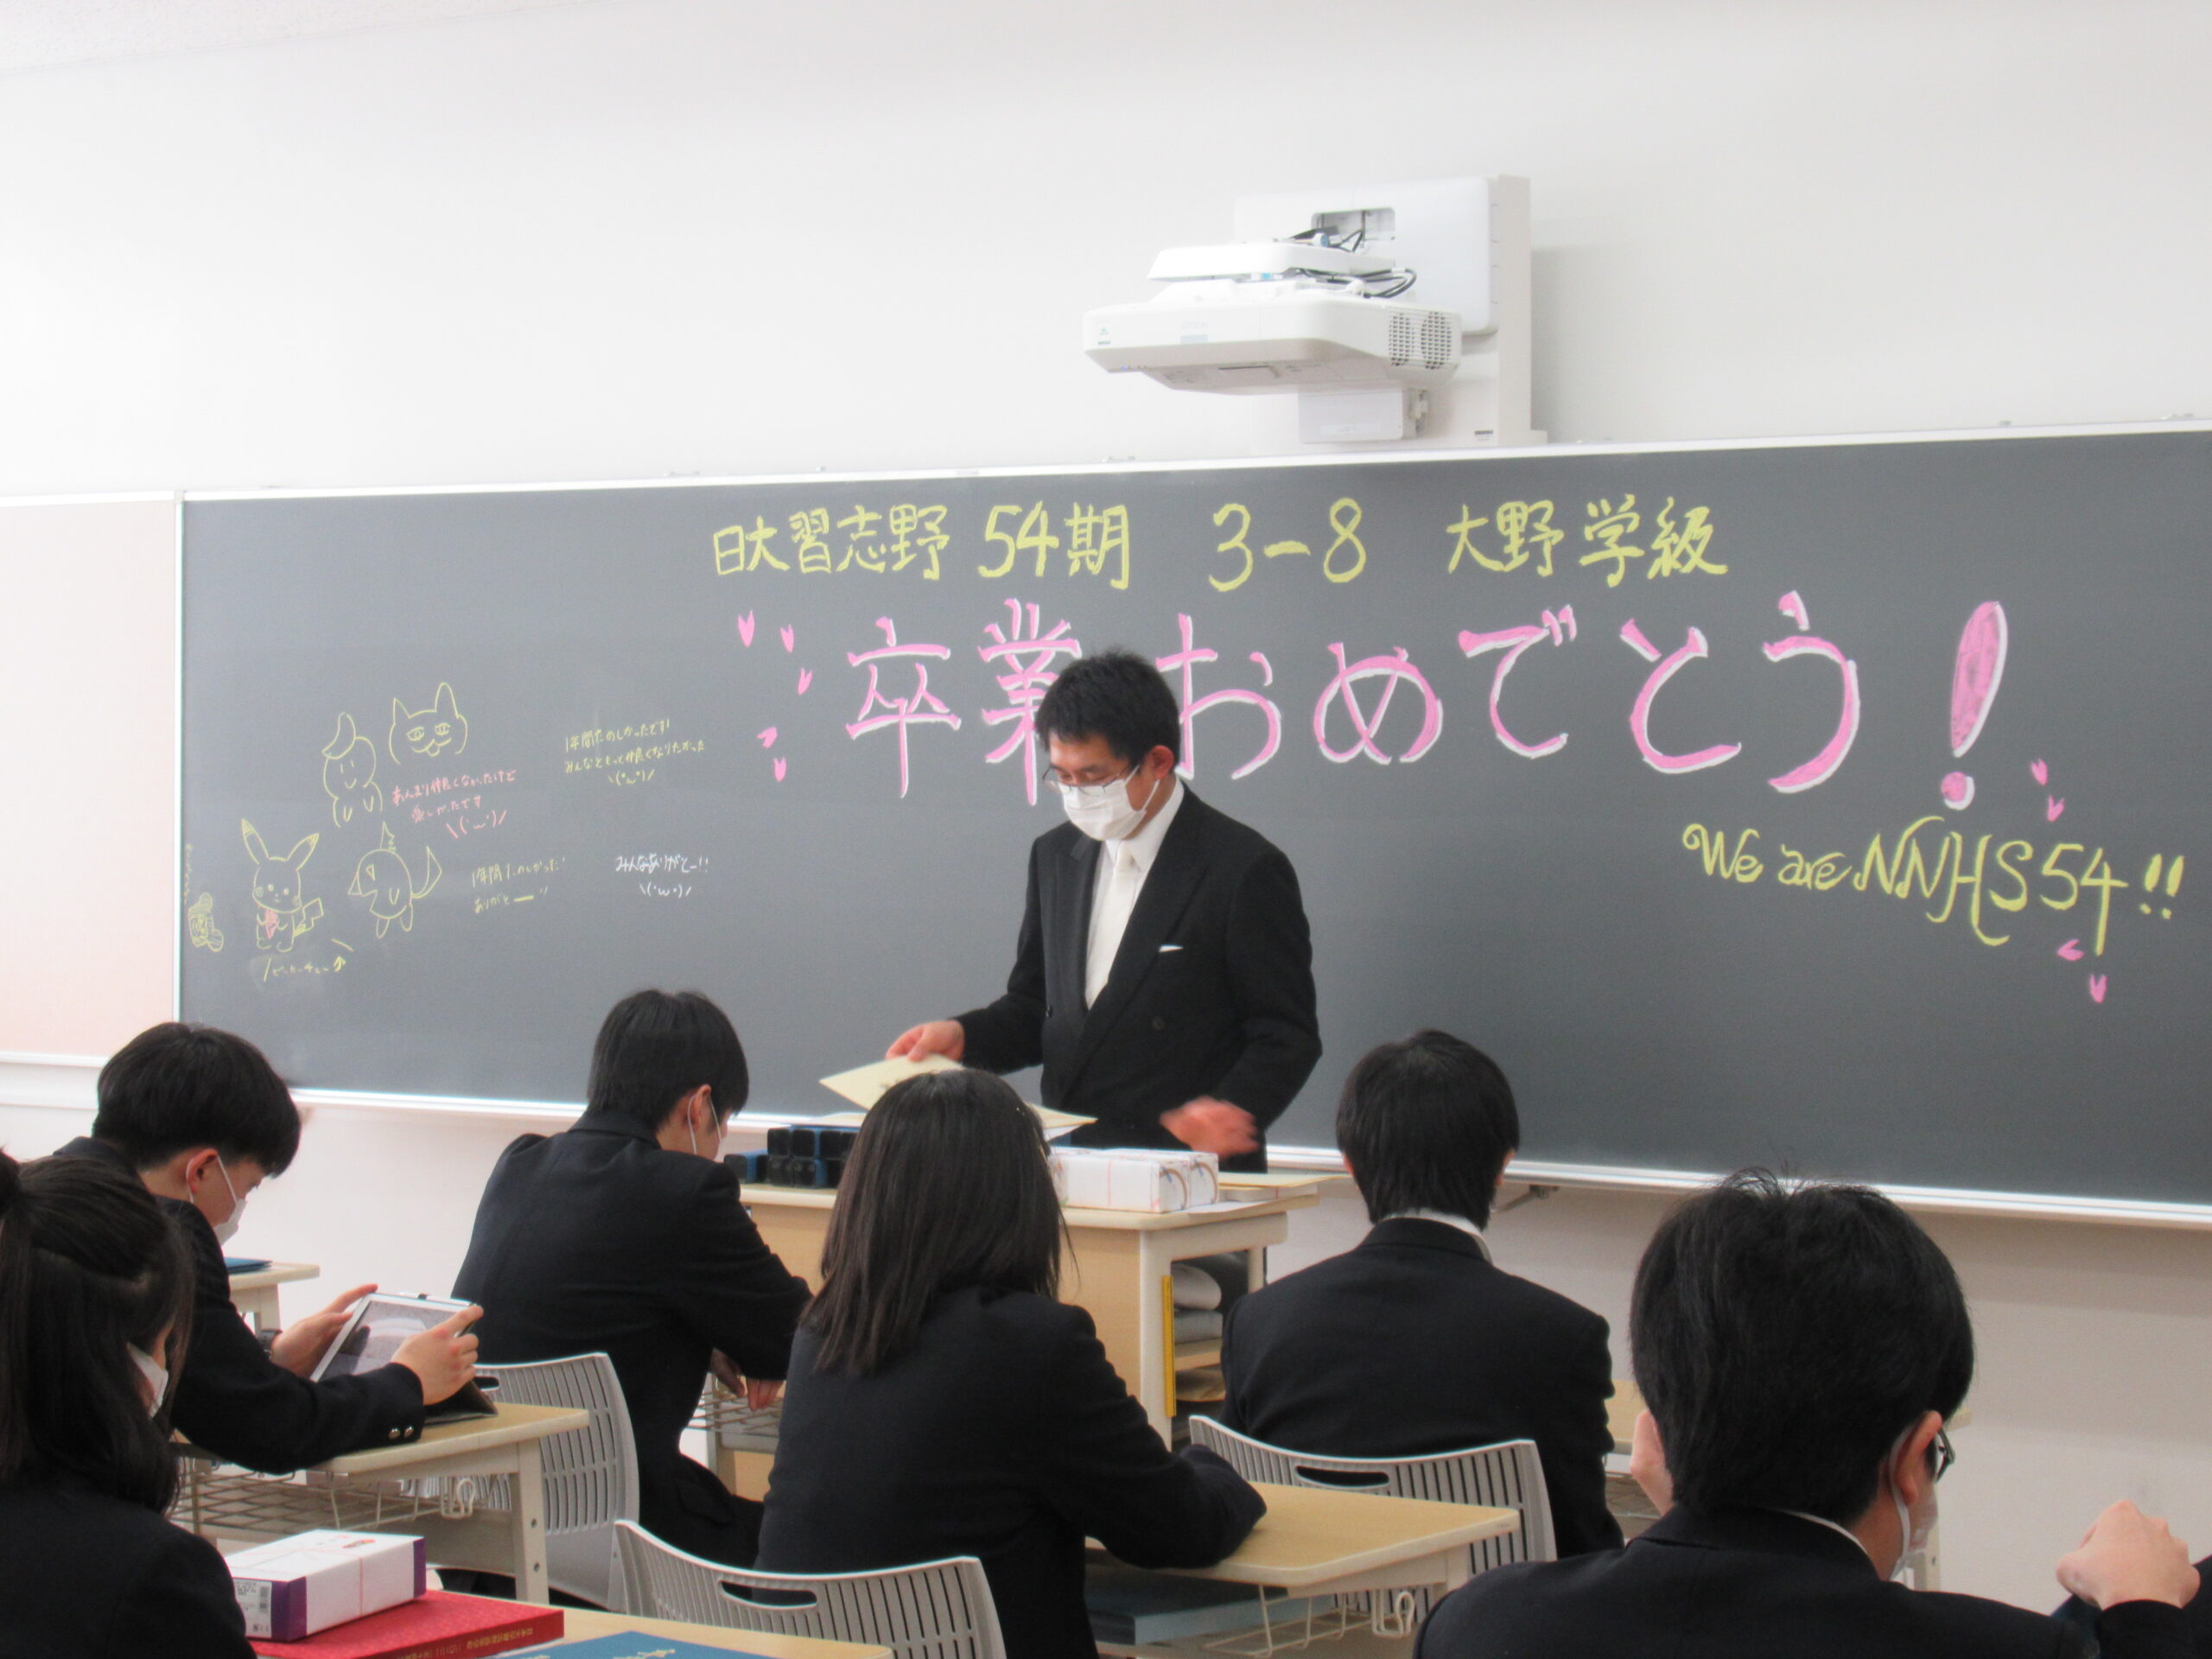 日大習志野 54期 3-8 大野学級
卒業おめでとう!
We are NNHS54!!
1年間たのしかったです!
みんなともっと仲良くなりたかった
\(°ω°)/
あんまり仲良くなかったけど
楽しかったです
\(・ω・)/
1年間たのしかった!
ありがとー
みんなありがとー!!
\(・ω・)/